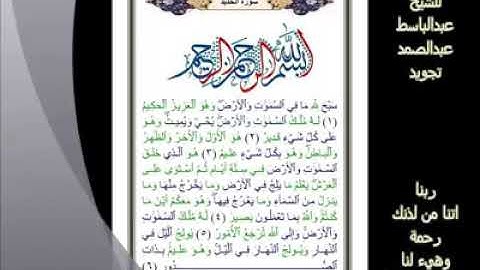 سورة الحديد
بسم الله الرحمن الرحيم
سبّح لله ما في السموت والأرض وهو العزيز الحكيم
(١) له ملك السموت والأرض يحي ويميت وهو
على كل شيء قدير (٢) هو الأول والأخر والظهر
والباطن وهو بكل شيء عليم (٣) هو الذي خلق
السموت والأرض في ستة أيام ثم استوى على
العرش يعلم ما يلج في الأرض وما يخرج منها وما
ينزل من السماء وما يعرج فيها وهو معكم أين ما
كنتم والله بما تعملون بصير (٤) له ملك السموت
والأرض وإلى الله ترجع الأمور (٥) يولج الليل في
النهار ويولج النهار في الليل وهو عليم بذات
الصدور (٦)
للشيخ
عبدالباسط
عبدالصمد
تجويد
ربنا
اتنا من لدنك
رحمة
وهيء لنا